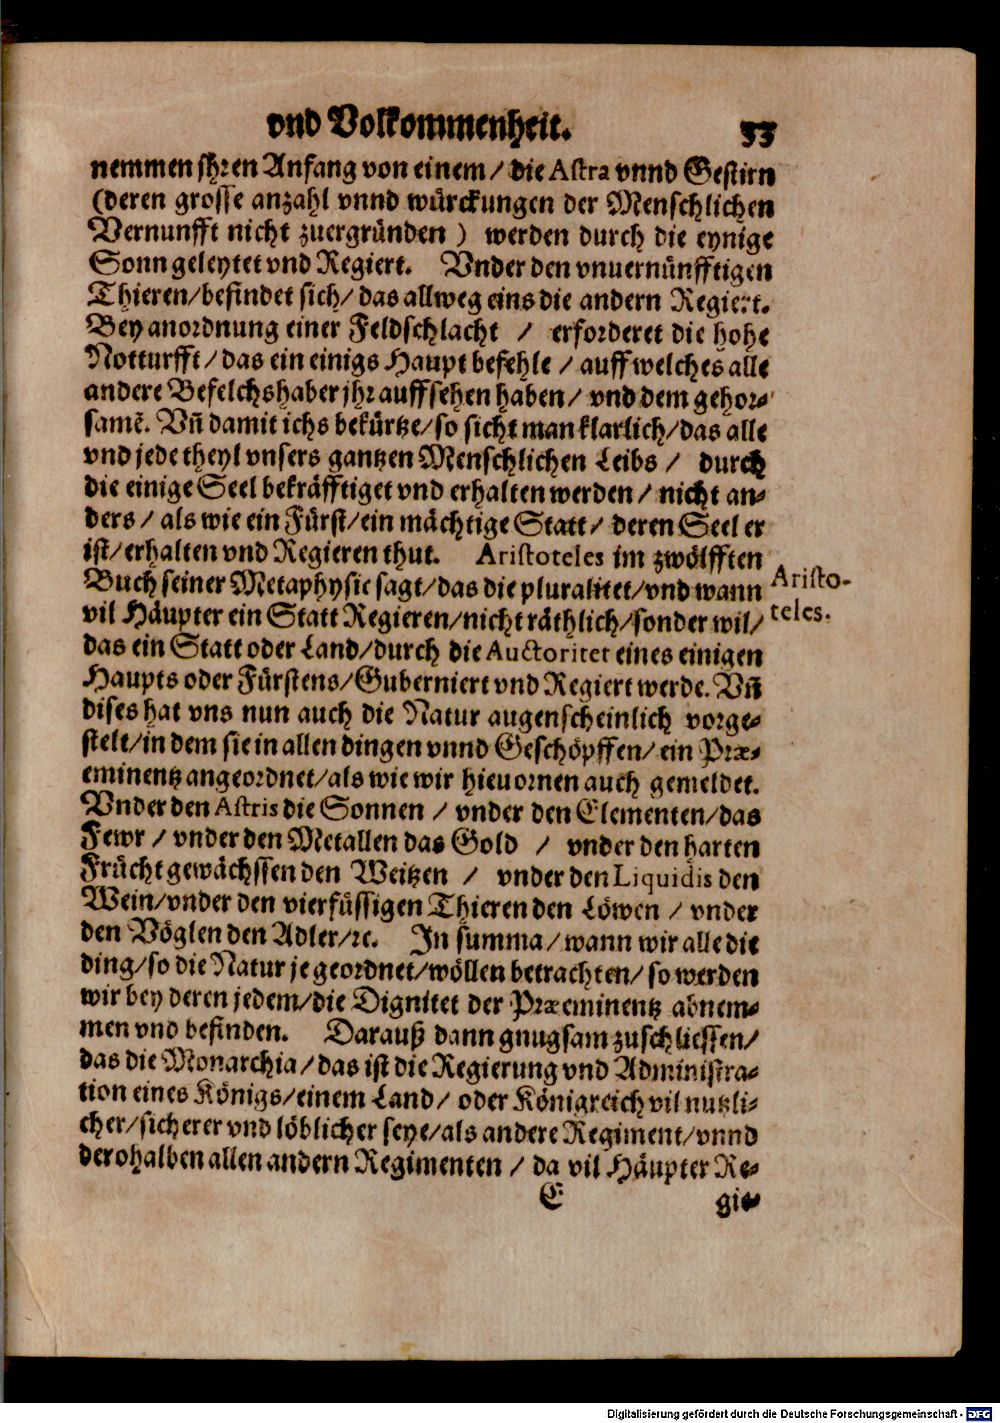 vnd Volkommenheit. 33
nemmen jhren Anfang von einem / die Astra vnnd Gestirn
(deren grosse anzahl vnnd würckungen der Menschlichen
Vernunfft nicht zuergründen ) werden durch die eynige
Sonn geleytet vnd Regiert. Vnder den vnuernünfftigen
Thieren / befindet sich / das allweg eins die andern Regiert.
Bey anordnung einer Feldschlacht / erforderet die hohe
Notturfft / das ein einigs Haupt befehle / auff welches alle
andere Befelchshaber jhr auffsehen haben / vnd dem gehor-
samẽ. Vñ damit ichs bekürtze / so sicht man klarlich / das alle
vnd jede theyl vnsers gantzen Menschlichen Leibs / durch
die einige Seel bekräfftiget vnd erhalten werden / nicht an-
ders / als wie ein Fürst / ein mächtige Statt / deren Seel er
ist / erhalten vnd Regieren thut. Aristoteles im zwölfften
Buch seiner Metaphysic sagt / das die pluralitet / vnd wann
vil Häupter ein Statt Regieren / nicht räthlich / sonder wil /
das ein Statt oder Land / durch die Auctoritet eines einigen
Haupts oder Fürstens / Guberniert vnd Regiert werde. Vñ
dises hat vns nun auch die Natur augenscheinlich vorge-
stelt / in dem sie in allen dingen vnnd Geschöpffen / ein Præ-
eminentz angeordnet / als wie wir hieuornen auch gemeldet.
Vnder den Astris die Sonnen / vnder den Elementen / das
Fewr / vnder den Metallen das Gold / vnder den harten
Frücht gewächssen den Weitzen / vnder den Liquidis den
Wein / vnder den vierfüssigen Thieren den Löwen / vnder
den Vöglen den Adler / ꝛc. In summa / wann wir alle die
ding / so die Natur je geordnet / wöllen betrachten / so werden
wir bey deren jedem / die Dignitet der Præeminentz abnem-
men vnd befinden. Darauß dann gnugsam zuschliessen /
das die Monarchia / das ist die Regierung vnd Administra-
tion eines Königs / einem Land / oder Königreich vil nutzli-
cher / sicherer vnd löblicher seye / als andere Regiment / vnnd
derohalben allen andern Regimenten / da vil Häupter Re-
E gie-
Aristo-
teles.
Digitalisierung gefördert durch die Deutsche Forschungsgemeinschaft - DFG